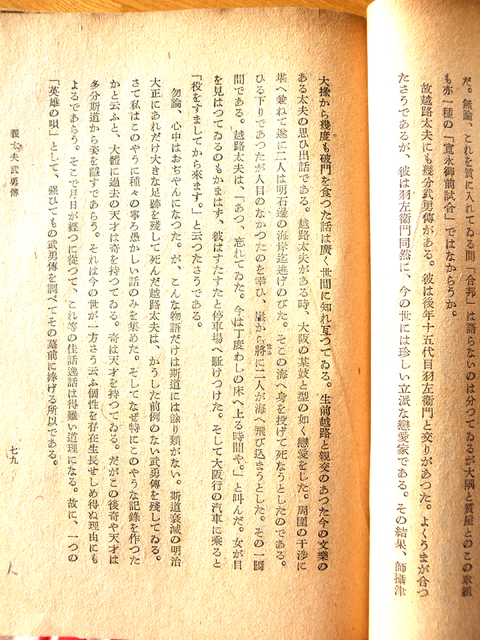 だ。無論、これを質に入れてゐる間「合邦」は語らないのは分つてゐるが大隅と質屋とのこの取組
も亦一種の「寛永御前試合」ではなからうか。
故越路太夫にも幾分武勇傳がある。彼は後年十五代目羽左衞門と交りがあつた。よくうまが合つ
たさうであるが、彼は羽左衞門同然に、今の世には珍しい立派な戀愛家である。その結果、師攝津
大掾から幾度も破門を食つた話は廣く世間に知れ亙つてゐる。生前越路と親交のあつた今の文樂の
ある太夫の思ひ出話である。越路太夫がある時、大阪の某妓と型の如く戀愛をした。周圍の干渉に
堪へ兼ねて遂に二人は明石邊の海岸迄逃げのびた。そこの海へ身を投げて死なうとしたのである。
ひる下りであつたが人目のなかつたのを幸ひ、崖から將に二人が海へ飛び込まうとした。その一瞬
間である。越路太夫は、「あつ、忘れてゐた。今は丁度わしの床へ上る時間や。」と叫んだ。女が目
を見はつてゐるのもかまはず、彼はすたすたと停車場へ駈けつけた。そして大阪行の汽車に乘ると
「役をすましてから來ます。」と云つたさうである。
勿論、心中はおぢやんになつた。が、こんな物語だけは斯道には餘り類がない。斯道衰滅の明治
大正にあれだけ大きな足跡を殘して死んだ越路太夫は、かうした前例のない武勇傳を殘してゐる。
さて私はこのやうに種々の寧ろ愚かしい話のみを集めた。そしてなぜ特にこのやうな記錄を作つた
かと云ふと、大體に過去の天才は奇を持つてゐる。奇は天才を持つてゐる。だがこの後奇や天才は
多分斯道から姿を隱すであらう。それは今の世が一方さう云ふ個性を存在生長せしめ得ぬ理由にも
よるであらう。そこで月日が經つに從つて、これ等の佳話逸話は得難い道理になる。故に、一つの
「英雄の唄」として、强ひてもの武勇傳を調べてその墓前に捧げる所以である。
義太夫武勇傳
七九